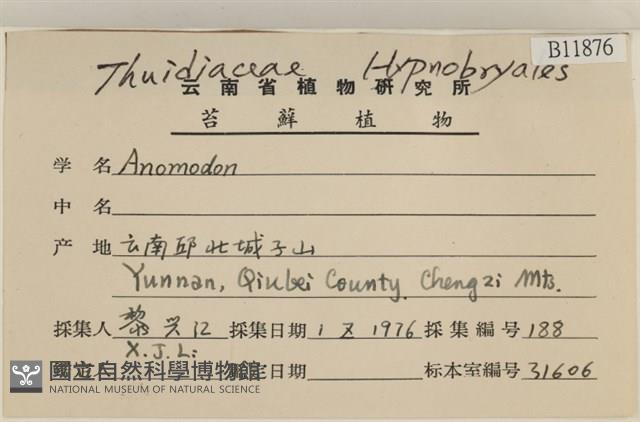 B11876
Thuidiaceae Hypnobryales
云南省植物研究所
苔蘚植物
学名 Anomodon
中名
产地 云南邱北城子山
Yunnan, Qiubei County. Chengzi Mts.
採集人 黎兴江 採集日期 1 X 1976 採集編号 188
X.J.Li
定日期 标本室編号 31606
國立自然科學博物館
NATIONAL MUSEUM OF NATURAL SCIENCE